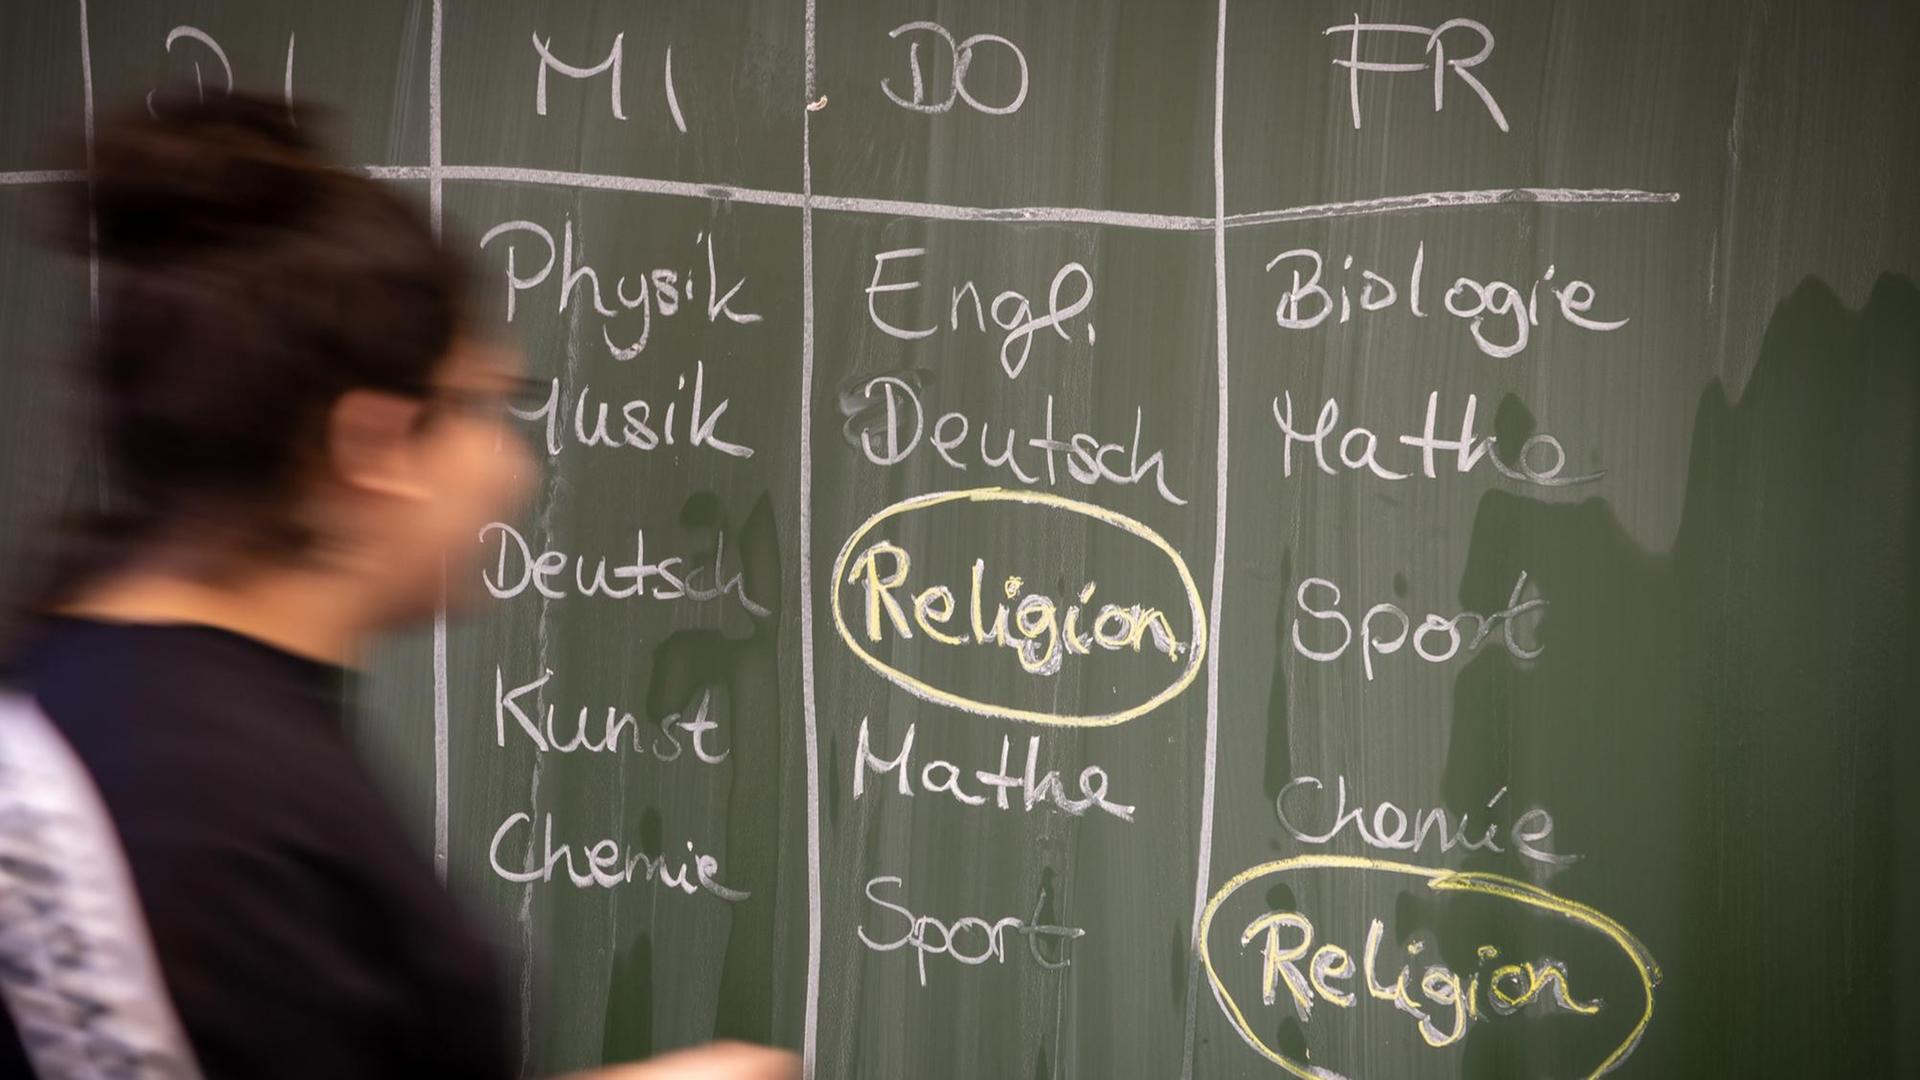 DI MI DO FR
Physik Engl. Biologie
Musik Deutsch Mathe
Deutsch Religion Sport
Kunst Mathe Chemie
Chemie Sport Religion